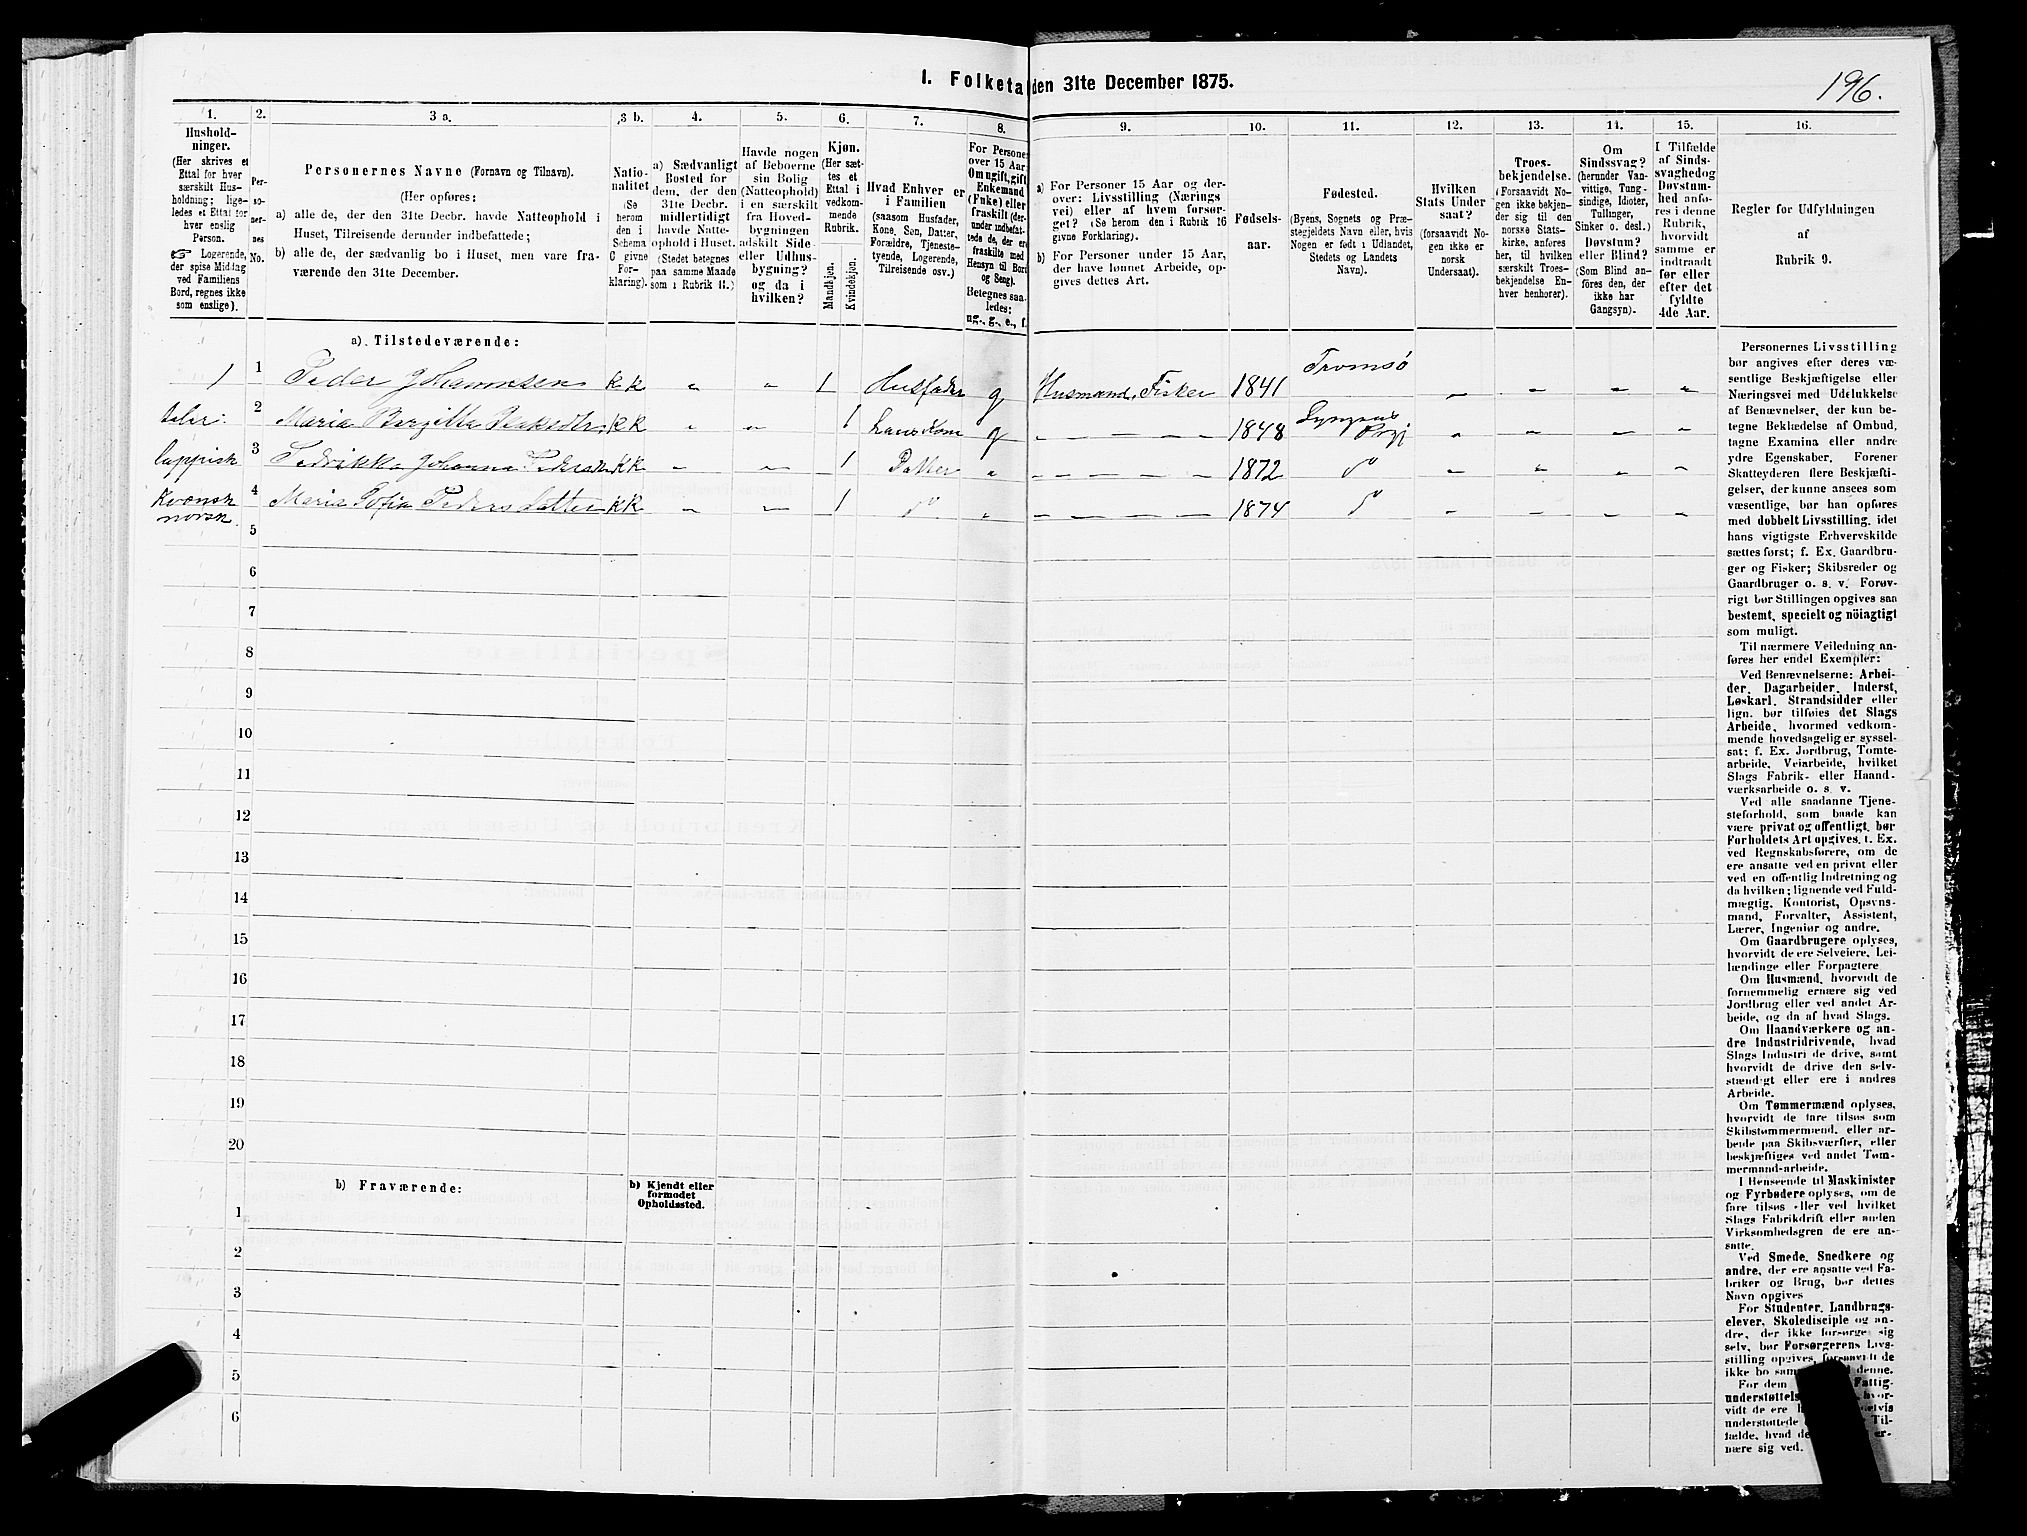 I. Folketal den 31te December 1875.
196.
1.
2.
3 a.
3 b.
4.
5.
6.
7.
8.
9.
10.
11.
12.
13.
14.
15.
16.
Hushold-
ninger.
(Her skrives et
Ettal for hver
særskilt Hus-
holdning; lige-
ledes et Ettal for
hver enslig
Person.
☞ Logerende,
der spise Middag
ved Familiens
Bord, regnes ikke
som enslige).
Per-
so-
ner-
nes
No.
Personernes Navne (Fornavn og Tilnavn).
(Her opføres:
a) alle de, der den 31te Decbr. havde Natteophold i
Huset, Tilreisende derunder indbefattede;
b) alle de, der sædvanlig bo i Huset, men vare fra-
værende den 31te December.
Natio-
nalitet
(Se
herom
den i
Schema
C givne
For-
klaring).
a) Sædvanligt
Bosted for
dem, der den
31te Decbr.
midlertidigt
havde Natte-
ophold i Huset.
(Stedet betegnes
paa samme Maade
som i Rubrik 11.)
Havde nogen
af Beboerne
sin Bolig
(Natteophold)
i en særskilt
fra Hoved-
bygningen
adskilt Side-
eller Udhus-
bygning?
og da i
hvilken?
Kjøn.
(Her sæt-
tes et
Ettal i
vedkom-
mende
Rubrik.
Mandkjøn.
Kvindekjøn.
Hvad Enhver er
i Familien
(saasom Husfader,
Kone, Søn, Datter,
Forældre, Tjeneste-
tyende, Logerende,
Tilreisende osv.)
For Personer
over 15 Aar:
Om ugift, gift,
Enkemand
(Enke) eller
fraskilt (der-
under indbefat-
tede de, der ere
fraskilte med
Hensyn til Bord
og Seng).
Betegnes saa-
ledes:
ug., g., e., f.
a) For Personer 15 Aar og der-
over: Livsstilling (Nærings
vei) eller af hvem forsør-
get? (Se herom den i Rubrik 16
givne Forklaring).
b) For Personer under 15 Aar,
der have lønnet Arbeide, op-
gives dettes Art.
Fødsels-
aar.
Fødested.
(Byens, Sognets og Præ-
stegjeldets Navn eller, hvis
Nogen er født i Udlandet,
Stedets og Landets
Navn).
Hvilken
Stats Under
saat?
(forsaavidt No-
gen ikke er
norsk
Undersaat).
Troes-
bekjendelse.
(Forsaavidt No-
gen ikke bekjen-
der sig til den
norske Stats-
kirke, anføres
her, til hvilken
særskilt Troes-
bekjendelse En-
hver henhører).
Om
Sindssvag?
(herunder Van-
vittige, Tung-
sindige, Idioter,
Tullinger,
Sinker o. desl.)
Døvstum?
eller Blind?
(Som Blind an-
føres den, der
ikke har
Gangsyn).
I Tilfælde
af Sinds-
svaghed og
Døvstum-
hed anfø-
res i denne
Rubrik,
hvorvidt
samme er
indtraadt
før eller
efter det
fyldte
4de Aar.
Regler for Udfyldningen
af
Rubrik 9.
a). Tilstedeværende:
1 1 Peder Johannesen KK 1 Husfader g Husmand, Fisker 1841 Tromsø
taler: 2 Maria Bergitta KK 1 hans Kone g 1848 Lyngens Prgj
lappisk 3 Fedrikke Johanna KK 1 Datter 1872 do
Kvænsk 4 Maria Sofia Pedersdatter KK 1 do 1874 do
norsk.
5
6
7
8
9
10
11
12
13
14
15
16
17
18
19
20
b) Fraværende:
b) Kjendt eller
formodet
Opholdssted.
1
2
3
4
5
6
Personernes Livsstilling
bør angives efter deres væ-
sentlige Beskjæftigelse eller
Næringsvei med Udelukkelse
af Benævnelser, der kun be-
tegne Beklædelse af Ombud,
tagne Examina eller andre
ydre Egenskaber. Forener
Skatteyderen flere Beskjæfti-
gelser, der kunne ansees som
væsentlige, bør han opføres
med dobbelt Livsstilling, idet
hans vigtigste Erhvervskilde
sættes først; f. Ex. Gaardbru-
ger og Fisker; Skibsreder og
Gaardbruger o. s. v. Forøv-
rigt bør Stillingen opgives saa
bestemt, specielt og nöiagtigt
som muligt.
Til nærmere Veiledning an-
føres her endel Exempler:
Ved Benævnelserne: Arbei-
der, Dagarbeider, Inderst,
Løskarl, Strandsidder eller
lign. bør tilføies det Slags
Arbeide, hvormed vedkom-
mende hovedsagelig er syssel-
sat; f. Ex. Jordbrug, Tomte-
arbeide, Veiarbeide, hvilket
Slags Fabrik- eller Haand-
værksarbeide o. s. v.
Ved alle saadanne Tjene-
steforhold, som baade kan
være privat og offentligt, bør
Forholdets Art opgives, f. Ex.
ved Regnskabsførere, om de
ere ansatte ved en privat eller
ved en offentlig Indretning og
da hvilken; lignende ved Fuld-
mægtig, Kontorist, Opsyns-
mand, Forvalter, Assistent,
Lærer, Ingeniør og andre.
Om Gaardbrugere oplyses,
hvorvidt de ere Selveiere, Lei-
lændinge eller Forpagtere
Om Husmænd, hvorvidt de
fornemmelig ernære sig ved
Jordbrug eller ved andet Ar-
beide, og da af hvad Slags.
Om Haandværkere og an-
dre Industridrivende, hvad
Slags Industri de drive, samt
hvorvidt de drive den selv-
stændigt eller ere i andres
Arbeide.
Om Tømmermænd oplyses,
hvorvidt de fare tilsøs som
Skibstømmermænd, eller ar-
beide paa Skibsværfter, eller
beskjæftiges ved andet Tøm-
mermand-arbeide.
I Henseende til Maskinister
og Fyrbødere oplyses, om de
fare tilsøs eller ved hvilket
Slags Fabrikdrift eller anden
Virksomhedsgren de ere an-
satte.
Ved Smede, Snedkere og
andre, der ere ansatte ved Fa-
briker og Brug, bør dettes
Navn opgives
For Studenter, Landbrugs-
elever, Skoledisciple og an-
dre, der ikke forsørge sig
selv, bør Forsørgerens Livs-
stilling opgives, forsaavidt de
ikke bo denne.
For dem Fattig-
understøttels hvor-
vidt de ere
understøttede Til-
fælde, hvad de er-
nære sig ved.